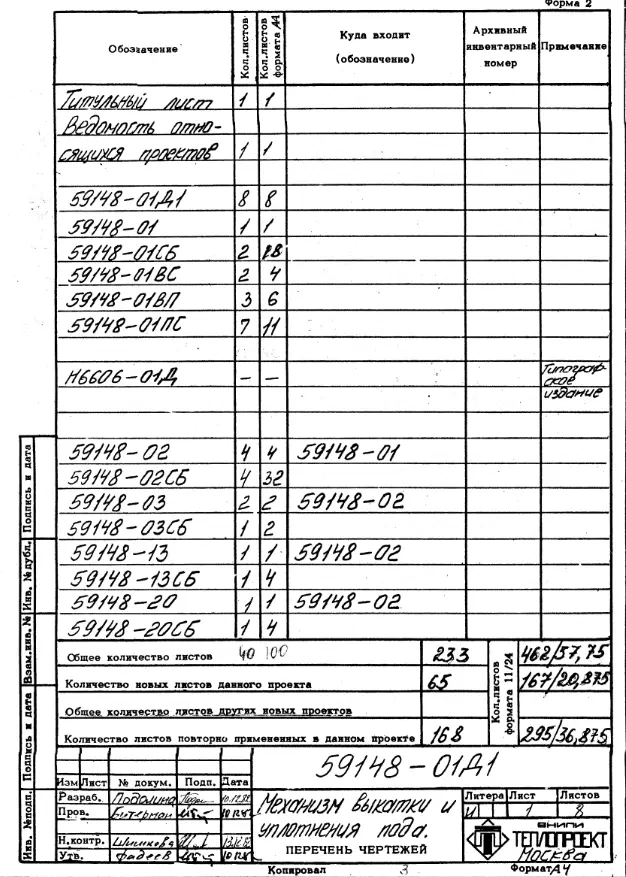 Форма 2
Обозначение Кол.листов Кол.листов формата А4 Куда входит (обозначение) Архивный инвентарный номер Примечание
Титульный лист 1 1
Ведомость отно-
сящихся проектов 1 1
59148-01Д1 8 8
59148-01 1 1
59148-01СБ 2 18
59148-01ВС 2 4
59148-01ВП 3 6
59148-01ПС 7 11
Н6606-01Д — — Типограф-
ское
издание
59148-02 4 4 59148-01
59148-02СБ 4 32
59148-03 2 2 59148-02
59148-03СБ 1 2
59148-13 1 1 59148-02
59148-13СБ 1 4
59148-20 1 1 59148-02
59148-20СБ 1 4
Общее количество листов 40 100 233 462/57,75
Количество новых листов данного проекта 65 167/20,875
Общее количество листов других новых проектов
Количество листов повторно примененных в данном проекте 168 295/36,875
Кол.листов формата 11/24
59148-01Д1
Изм Лист № докум. Подп. Дата
Разраб. 10.12.82
Пров. Битерман
Н.контр.
Утв. Фадеев
Механизм выкатки и
уплотнения пода.
ПЕРЕЧЕНЬ ЧЕРТЕЖЕЙ
Литера Лист Листов
И 1 8
ВНИПИ
ТЕПЛОПРОЕКТ
МОСКВА
Копировал 3 Формат А4
Подпись и дата
Инв. № дубл.
Взам.инв. №
Подпись и дата
Инв. №подл.